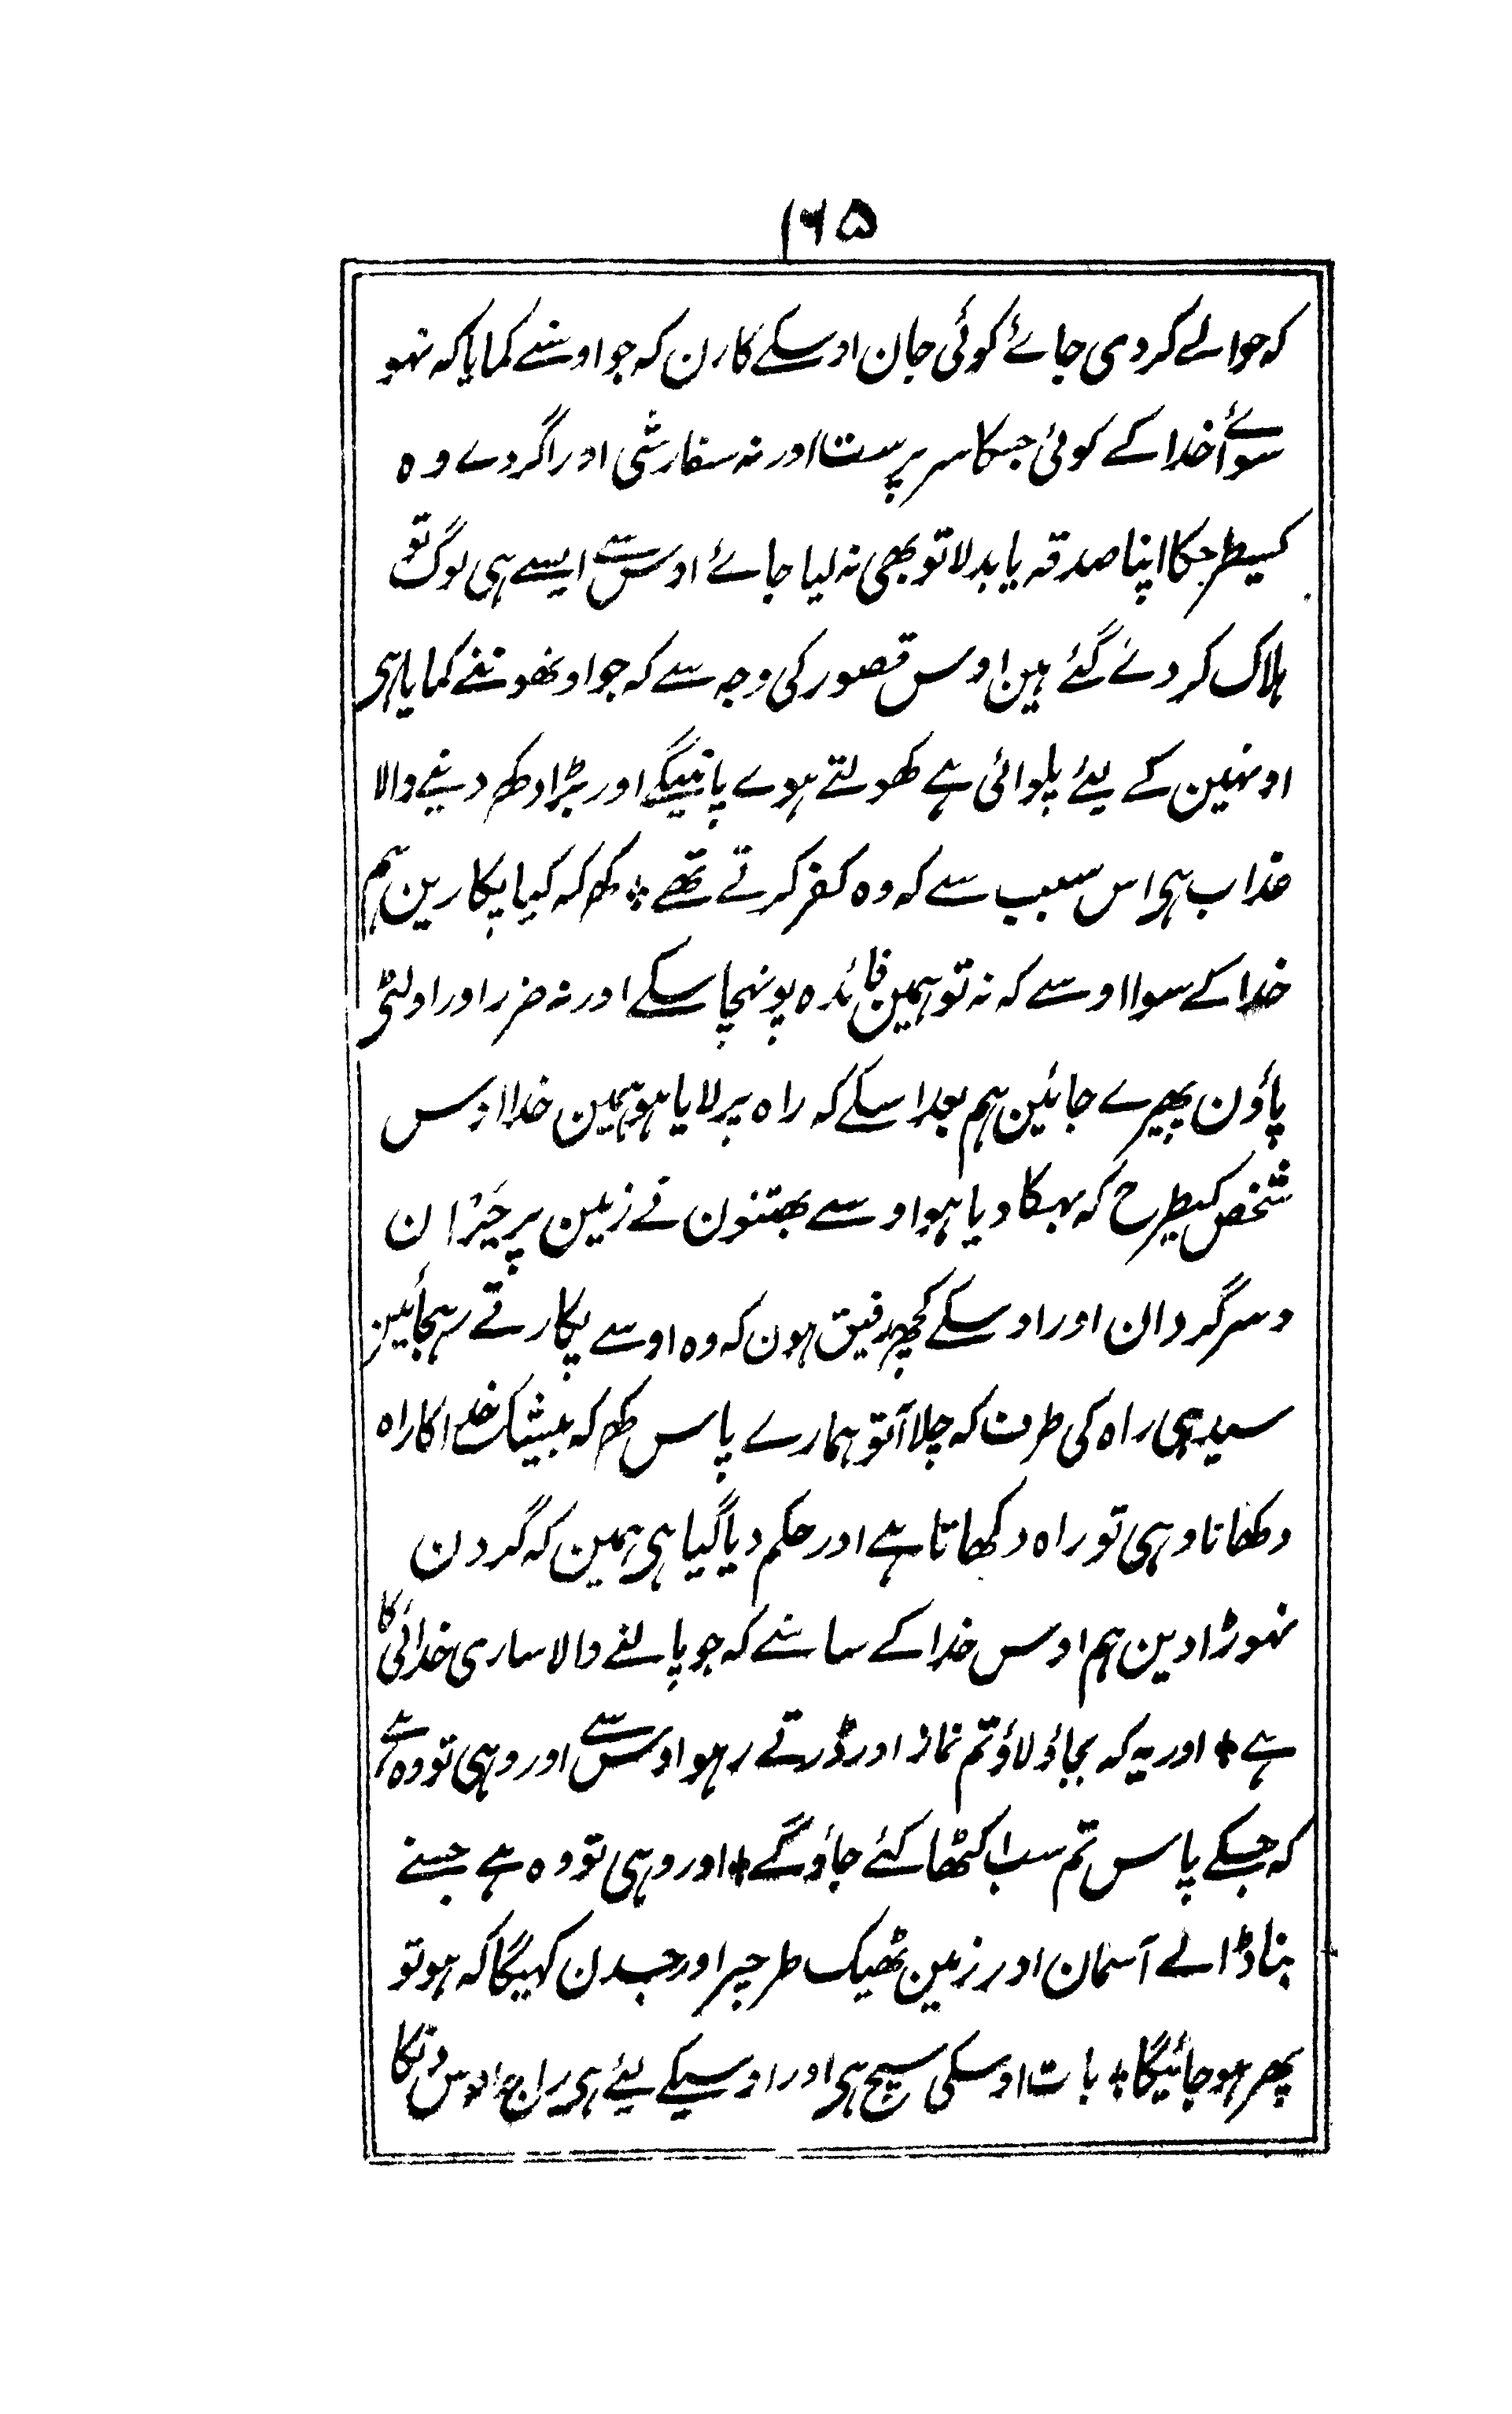 ۱۶۵
کہ حوالے کردی جائے کوئی جان اوسکے کارن کہ جو اوسنے کمایا کہ نہو
سوائے خدا کے کوئی جسکا سرپرست اور نہ سفارشی اور اگر دے وہ
کسیطرحکا اپنا صدقہ یا بدلا تو بھی نہ لیا جائے اوس سے ایسے ہی لوگ تو
ہلاک کردئے گئے ہین اوس قصور کی وجہ سے کہ جو اونھوننے کمایا ہی
اونہین کے لیئے پلوائی ہے کھولتے ہوے پانیکے اور بڑا دکھ دینے والا
عذاب ہی اس سبب سے کہ وہ کفر کرتے تھے ٭ کھ کہ کیا پکارین ہم
خدا کے سوا اوسے کہ نہ تو ہمین فائدہ پونہچا سکے اور نہ ضرر اور اولٹی
پاؤن پھیرے جائین ہم بعد اسکے کہ راہ پر لایا ہو ہمین خدا اوس
شخص کیطرح کہ بہکا دیا ہو اوسے بھتنون نے زمین پر حیران
و سرگردان اور اوسکے کچھ رفیق ہون کہ وہ اوسے پکارتے رہجائین
سیدہی راہ کی طرف کہ چلا آ تو ہمارے پاس کھ کہ بیشک خدا کا راہ
دکھانا وہی تو راہ دکھاتا ہے اور حکم دیا گیا ہی ہمین کہ گردن
نہوڑا دین ہم اوس خدا کے سامنے کہ جو پالنے والا ساری خدائی کا
ہے ٭ اور یہ کہ بجاؤ لاؤ تم نماز اور ڈرتے رہو اوس سے اور وہی تو وہ ہے
کہ جسکے پاس تم سب اکٹھا کئے جاؤگے ٭ اور وہی تو وہ ہے جسنے
بنا ڈالے آسمان اور زمین ٹھیک طرحپر اور جسدن کہیگا کہ ہو تو
پھر ہو جائیگا ٭ بات اوسکی سچ ہی اور اوسیکے لیئے ہی راج اوس دنکا